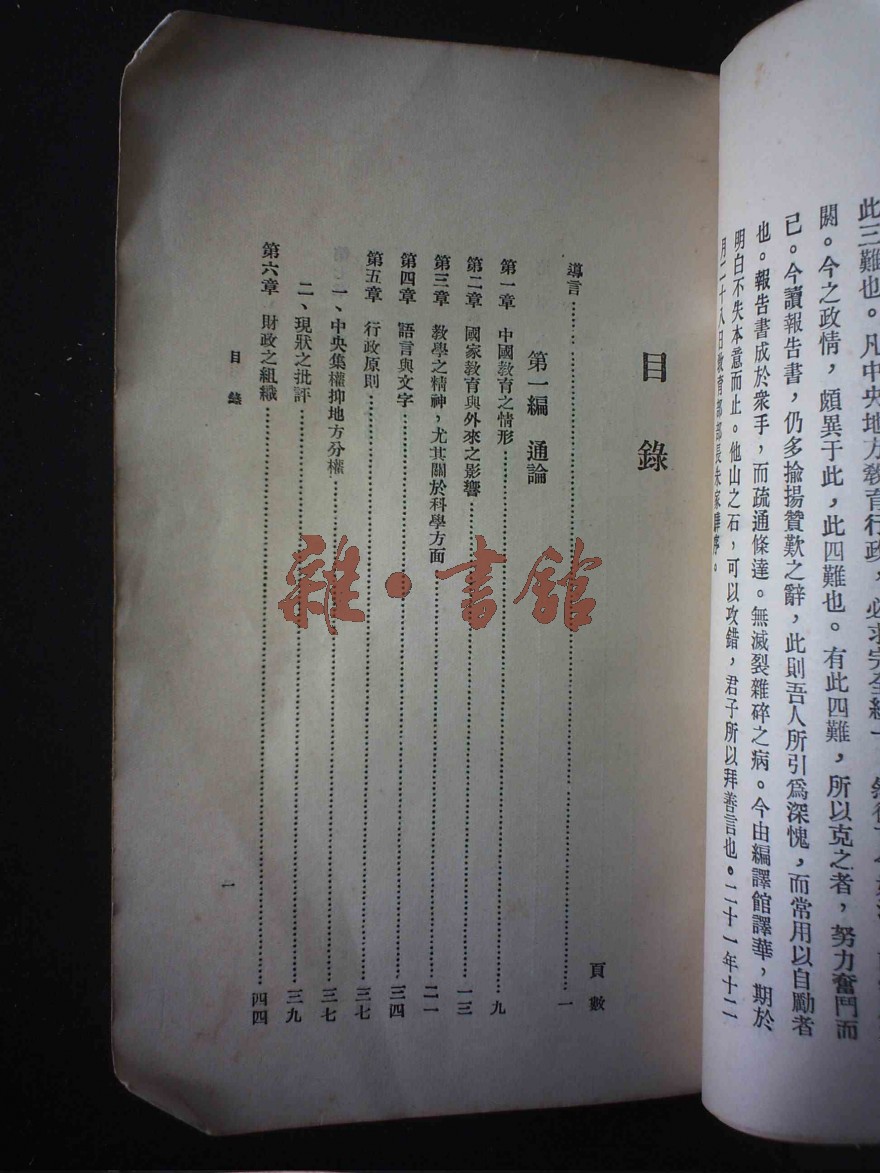 此三難也。凡中央地方敎育行政，必求完全統一，然後
闕。今之政情，頗異于此，此四難也。有此四難，所以克之者，努力奮鬥而
已。今讀報告書，仍多揄揚贊歎之辭，此則吾人所引爲深愧，而常用以自勵者
也。報告書成於衆手，而疏通條達。無滅裂雜碎之病。今由編譯館譯華，期於
明白不失本意而止。他山之石，可以攻錯，君子所以拜善言也。二十一年十二
月二十八日敎育部部長朱家驊序。
目錄
頁數
導言……一
第一編 通論
第一章 中國敎育之情形……九
第二章 國家敎育與外來之影響……一三
第三章 敎學之精神，尤其關於科學方面……二一
第四章 語言與文字……三四
第五章 行政原則……三七
一、中央集權抑地方分權……三七
二、現狀之批評……三九
第六章 財政之組織……四四
目錄
一
雜·書館